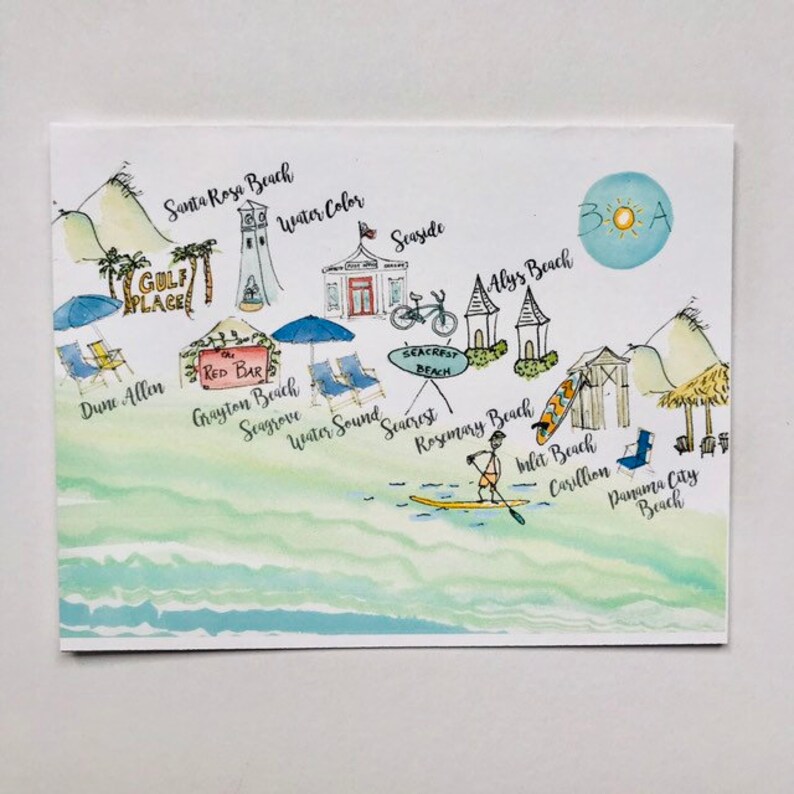 Santa Rosa Beach
Water Color
Seaside
Alys Beach
3 A
GULF
PLACE
POST OFFICE
SEACREST
BEACH
the
RED BAR
Dune Allen
Grayton Beach
Seagrove
Water Sound
Seacrest
Rosemary Beach
Inlet Beach
Carillion
Panama City
Beach